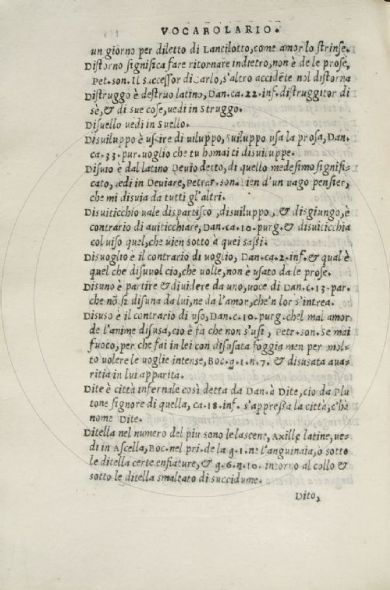 VOCABOLARIO.
un giorno per diletto di Lancilotto, come amor lo strinse.
Distorno significa fare ritornare indietro, non è de le prose,
Pet. son. Il successor di Carlo, s'altro accidēte nol distorna
Distruggo è destruo latino, Dan. ca. 22. inf. distruggitor di
sè, & di sue cose, vedi in Struggo.
Disuello vedi in Suello.
Disuiluppo è uscire di uiluppo, Suiluppo usa la prosa, Dan.
ca. 33. pur. uoglio che tu homai ti disuiluppe.
Disuio è dal latino Deuio detto, di quello medesimo signifi-
cato, vedi in Deuiare, Petrar. son. ien d'un uago pensier,
che mi disuia da tutti gl'altri.
Disuiticchio uale dispartisco, disuiluppo, & disgiungo, è
contrario di auiticchiare, Dan. ca. 10. purg. & disuiticchia
col uiso quel, che uien sotto a quei sassi.
Disuoglio è il contrario di uoglio, Dan. ca. 2. inf. & qual è
quel che disuuol cio, che uolle, non è usato da le prose.
Disuno è partire & diuidere da uno, uoce di Dan. c. 13. par.
che nō si disuna da lui, ne da l'amor, che'n lor s'intrea.
Disuso è il contrario di uso, Dan. c. 10. purg. chel mal amor
de l'anime disusa, cio è fa che non s'usi, Petr. son. Se mai
fuoco, per che fai in lei con disusata foggia men per mol-
to uolere le uoglie intense, Boc. g. 1. n. 7. & disusata aua-
ritia in lui apparita.
Dite è città infernale così detta da Dan. à Dite, cio da Plu
tone signore di quella, ca. 18. inf. s'appressa la città, c'hà
nome Dite.
Ditella nel numero del piu sono le ascene, Axille latine, ue-
di in Ascella, Boc. nel pri. de la g. 1. ne l'anguinaia, ò sotto
le ditella certe enfiature, & g. 6. n. 10. intorno al collo &
sotto le ditella smaltato di succidume.
Dito,